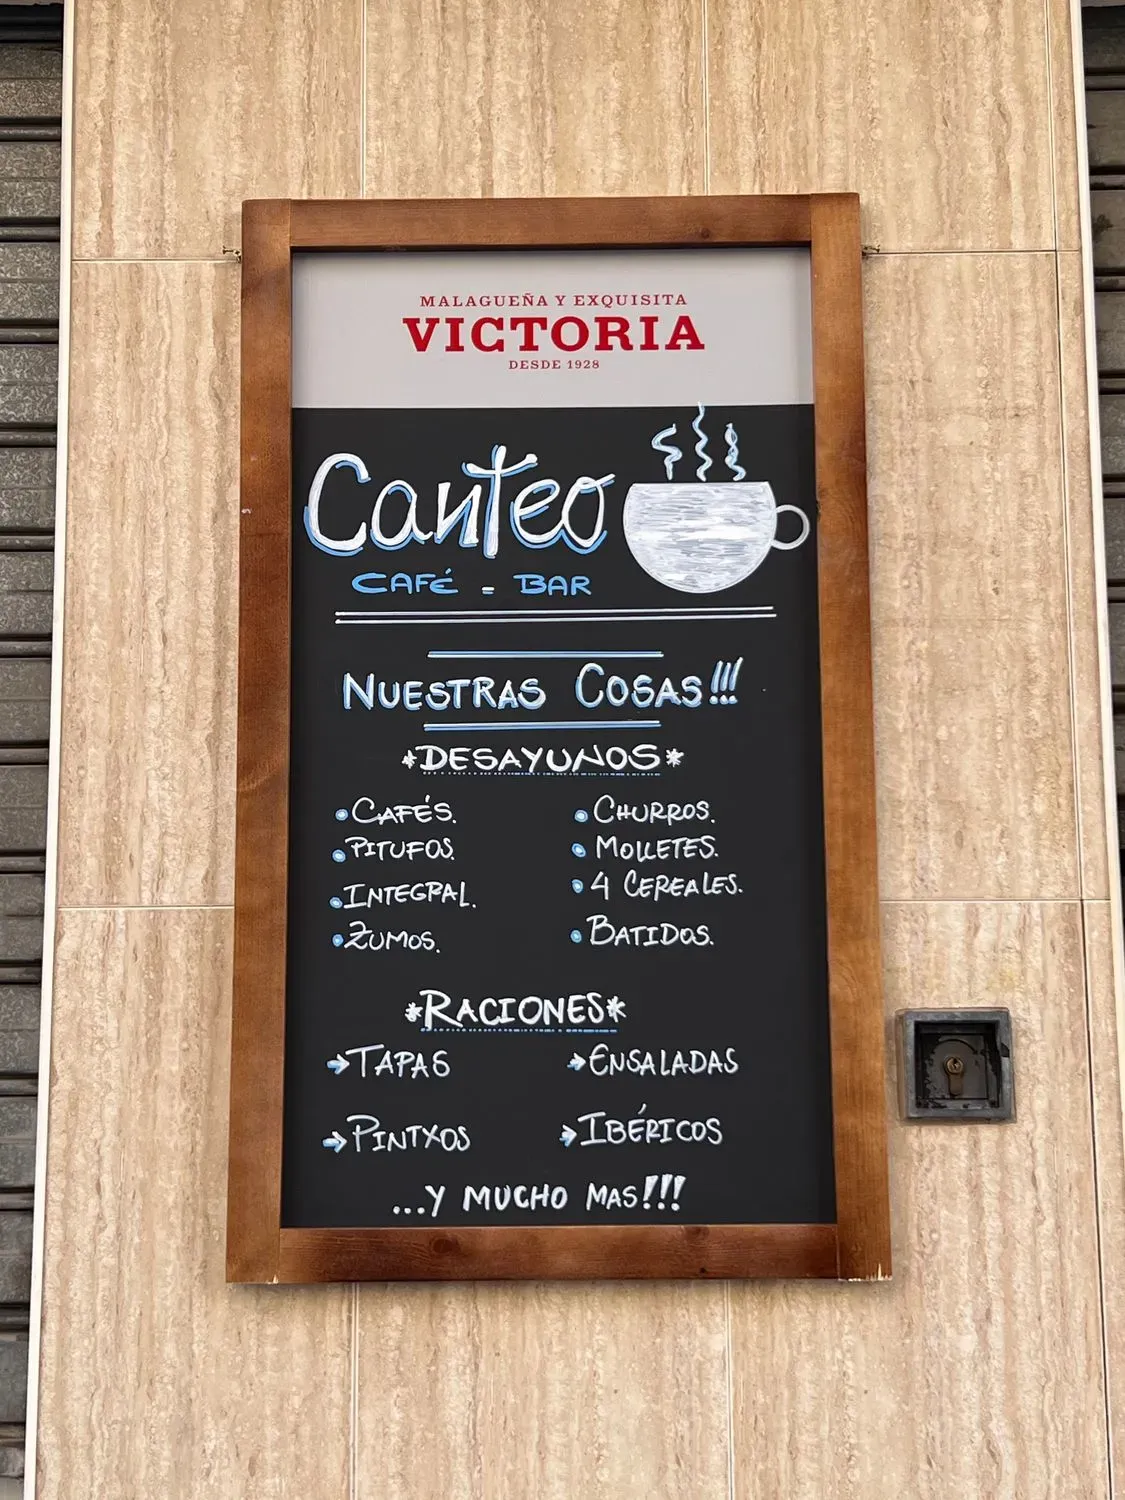 MALAGUEÑA Y EXQUISITA
VICTORIA
DESDE 1928
Canteo
CAFÉ - BAR
NUESTRAS COSAS!!!
*DESAYUNOS*
•CAFÉS.
•PITUFOS.
•INTEGRAL.
•ZUMOS.
•CHURROS.
•MOLLETES.
•4 CEREALES.
•BATIDOS.
*RACIONES*
→TAPAS
→PINTXOS
→ENSALADAS
→IBÉRICOS
...Y MUCHO MAS!!!